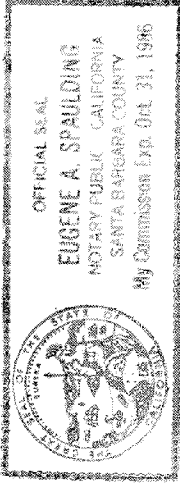 OFFICIAL SEAL
EUGENE A. SPAULDING
NOTARY PUBLIC CALIFORNIA
SANTA BARBARA COUNTY
My Commission Exp. Oct. 31, 1986
THE GREAT SEAL OF THE STATE OF CALIFORNIA
EUREKA